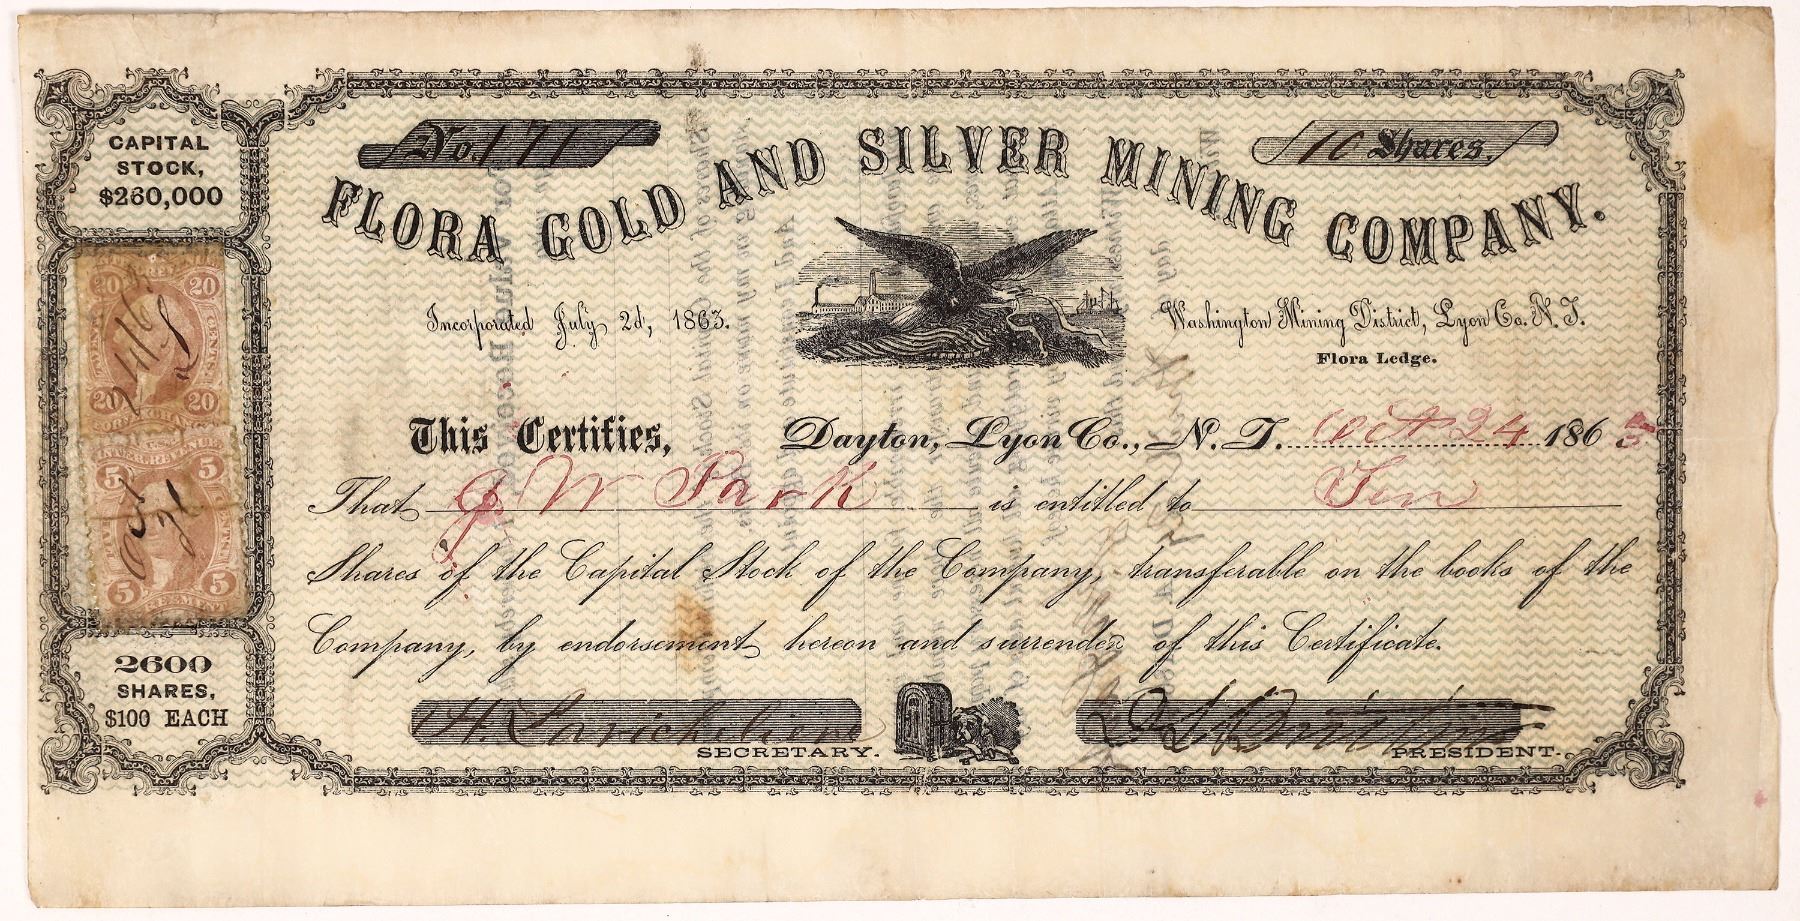 CAPITAL
STOCK,
$260,000
No. 171
10 Shares.
FLORA GOLD AND SILVER MINING COMPANY.
Incorporated July 2d, 1863.
Washington Mining District, Lyon Co. N. T.
Flora Ledge.
20 20
20 20
5
5 5
Oct
2600
SHARES,
$100 EACH
This Certifies,
Dayton, Lyon Co., N. T. Oct 24 1863
That J W Park is entitled to Ten
Shares of the Capital Stock of the Company, transferable on the books of the
Company, by endorsement hereon and surrender of this Certificate.
SECRETARY.
PRESIDENT.